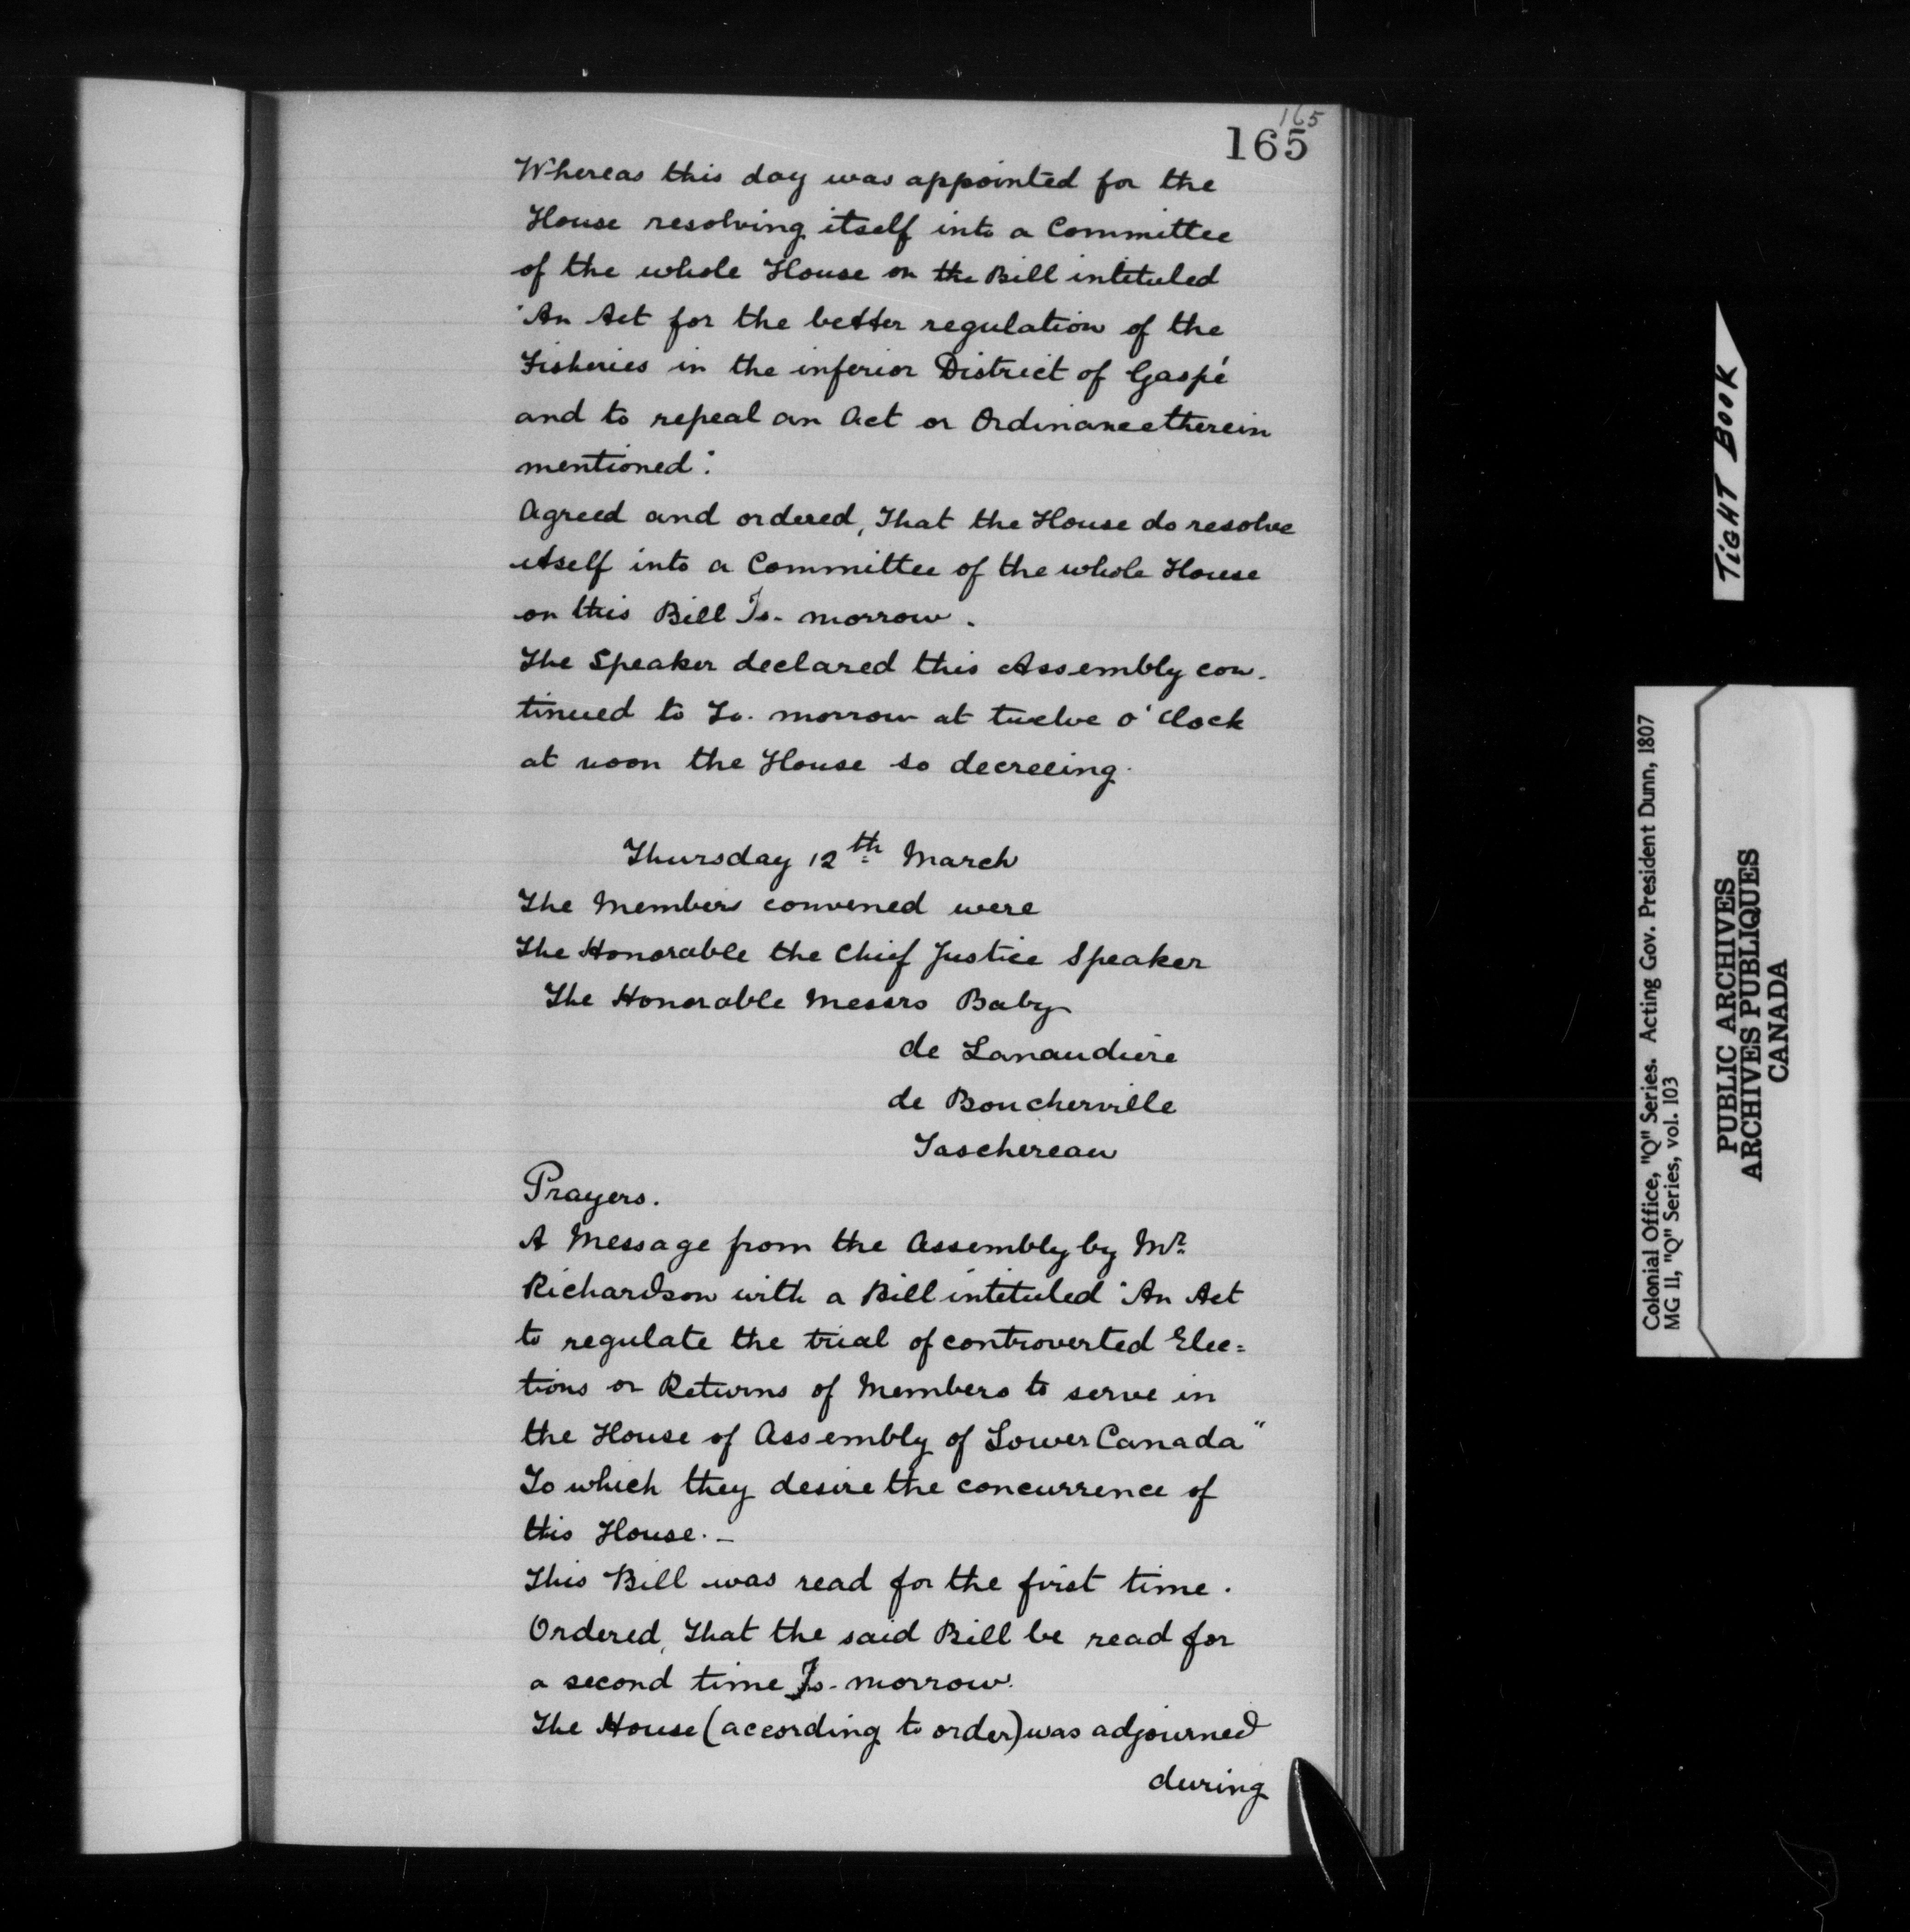 165
165
Whereas this day was appointed for the
House resolving itself into a Committee
of the whole House on the Bill intituled
"An Act for the better regulation of the
Fisheries in the inferior District of Gaspé
and to repeal an Act or Ordinance therein
mentioned".
Agreed and ordered, That the House do resolve
itself into a Committee of the whole House
on this Bill To-morrow.
The Speaker declared this Assembly con-
tinued to To-morrow at twelve o'Clock
at noon the House so decreeing.
Thursday 12th March
The Members convened were
The Honorable the Chief Justice Speaker
The Honorable Messrs Baby
de Lanaudiere
de Boucherville
Taschereau
Prayers.
A Message from the Assembly by Mr.
Richardson with a Bill intituled "An Act
to regulate the trial of controverted Elec=
tions or Returns of Members to serve in
the House of Assembly of Lower Canada"
To which they desire the concurrence of
this House. –
This Bill was read for the first time.
Ordered, That the said Bill be read for
a second time To-morrow.
The House (according to order) was adjourned
during
TIGHT BOOK
Colonial Office, "Q" Series. Acting Gov. President Dunn, 1807
MG 11, "Q" Series, vol. 103
PUBLIC ARCHIVES
ARCHIVES PUBLIQUES
CANADA